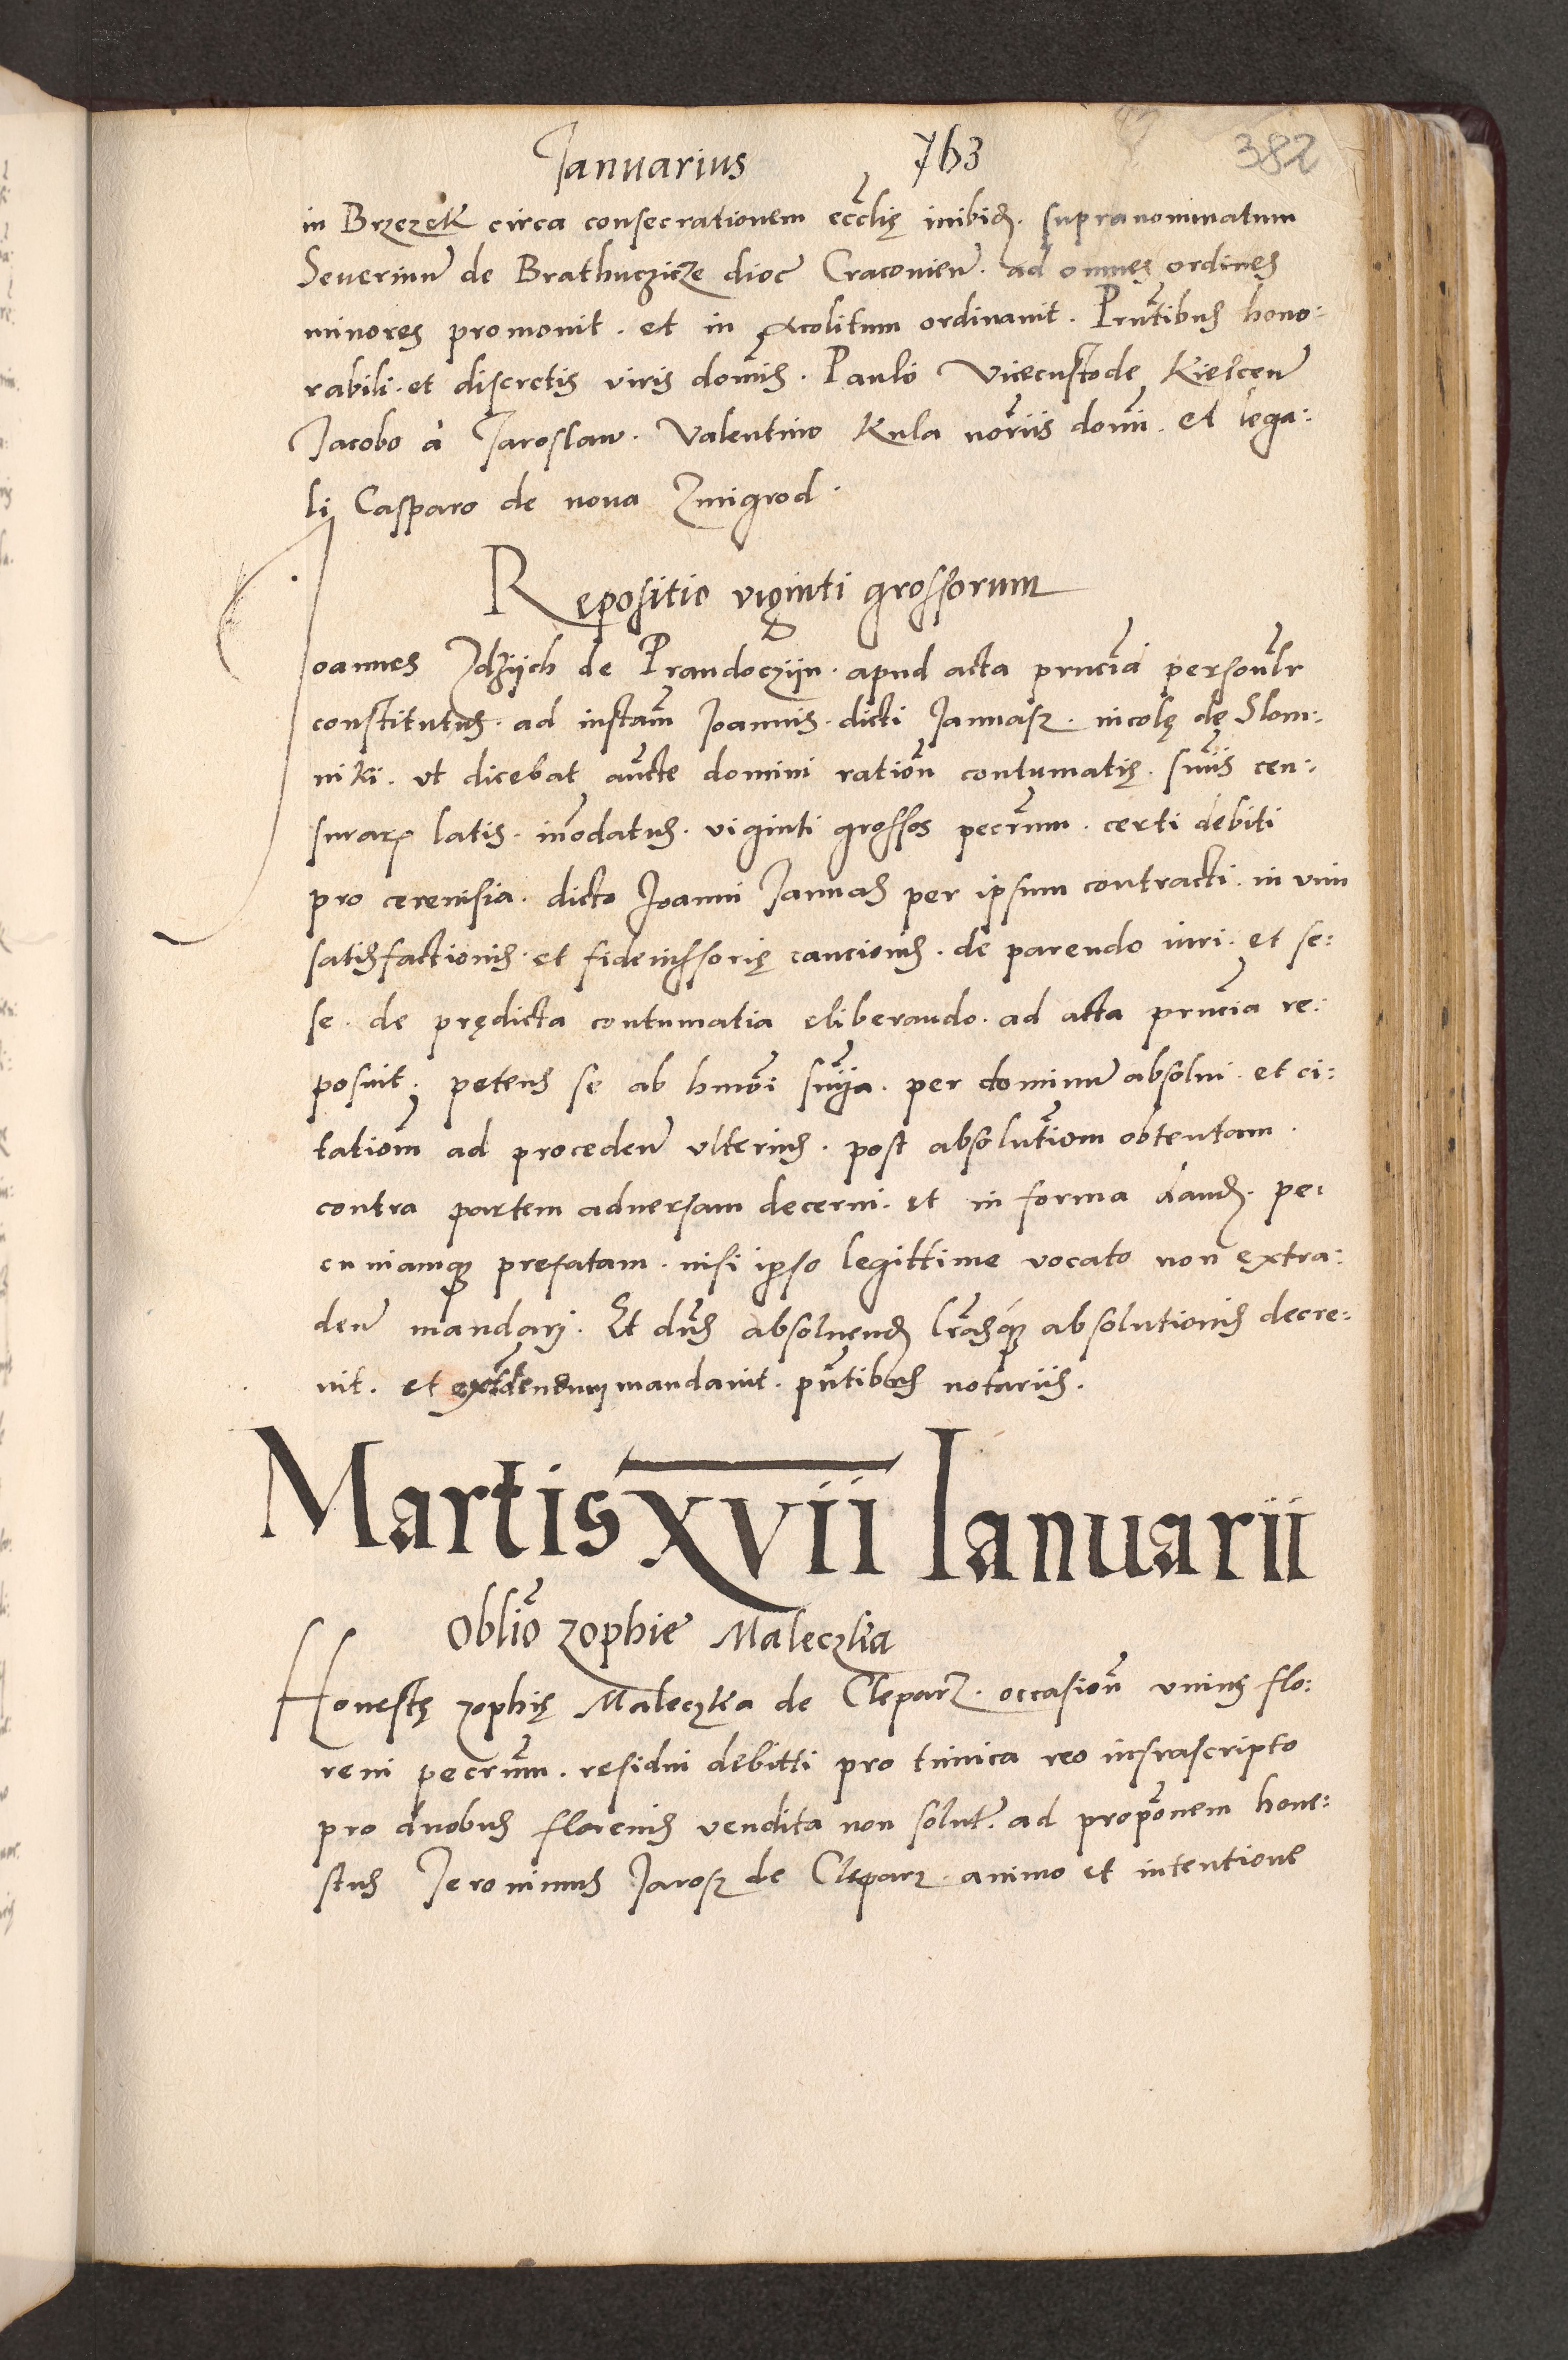 Januarius 763 382
in Brzezek circa consecrationem eccłie inibid. supranominatum
Seuerinu de Brathuczicze dioc Cracouien. ad omnes ordines
minores promouit. et in Acolitum ordinauit. Prntibus hono:
rabili. et discretis viris dominis. Paulo Vicecustode Kielcen
Jacobo à Jaroslaw. Valentino Kula noriis domi. et lega:
li Casparo de noua Zmigrod.
Repositio viginti grossorum
Joannes Idzijch de Prandoczijn. apud acta prncia personlr
constitutus. ad instam Joannis. dicti Jannasz. nicolę de Slom:
niki. vt dicebat aucte domini ration contumatię. snijs cen:
surar latis. inodatus. viginti grossos pecrum. certi debiti
pro cereuisia. dicto Joanni Jannas per ipsum contracti. in vim
satisfactionis. et fideiussorię caucionis. de parendo iuri. et se:
se. de prędicta contumatia eliberando. ad acta prncia re:
posuit. petens se ab hmoi snija. per dominu absolui. et ci:
tationm ad proceden vlterius. post absolutiom obtentam.
contra partem aduersam decerni. et in forma dand. pe:
cuniamq prefatam. nisi ipso legittime vocato non extra:
den mandarj. Et dns absoluend lrasq absolutionis decre:
uit. et extdendum mandauit. pntibus notariis.
Martis xvii Ianuarii
Oblio zophie Maleczka
Honestę zophię Maleczka de Cleparz. occasion vnius flo:
reni pecrum. residui debitti pro tunica reo infrascripto
pro duobus florenis vendita non solut. ad proponem hone:
stus Jeronimus Jarosz de Cleparz. animo et intentione